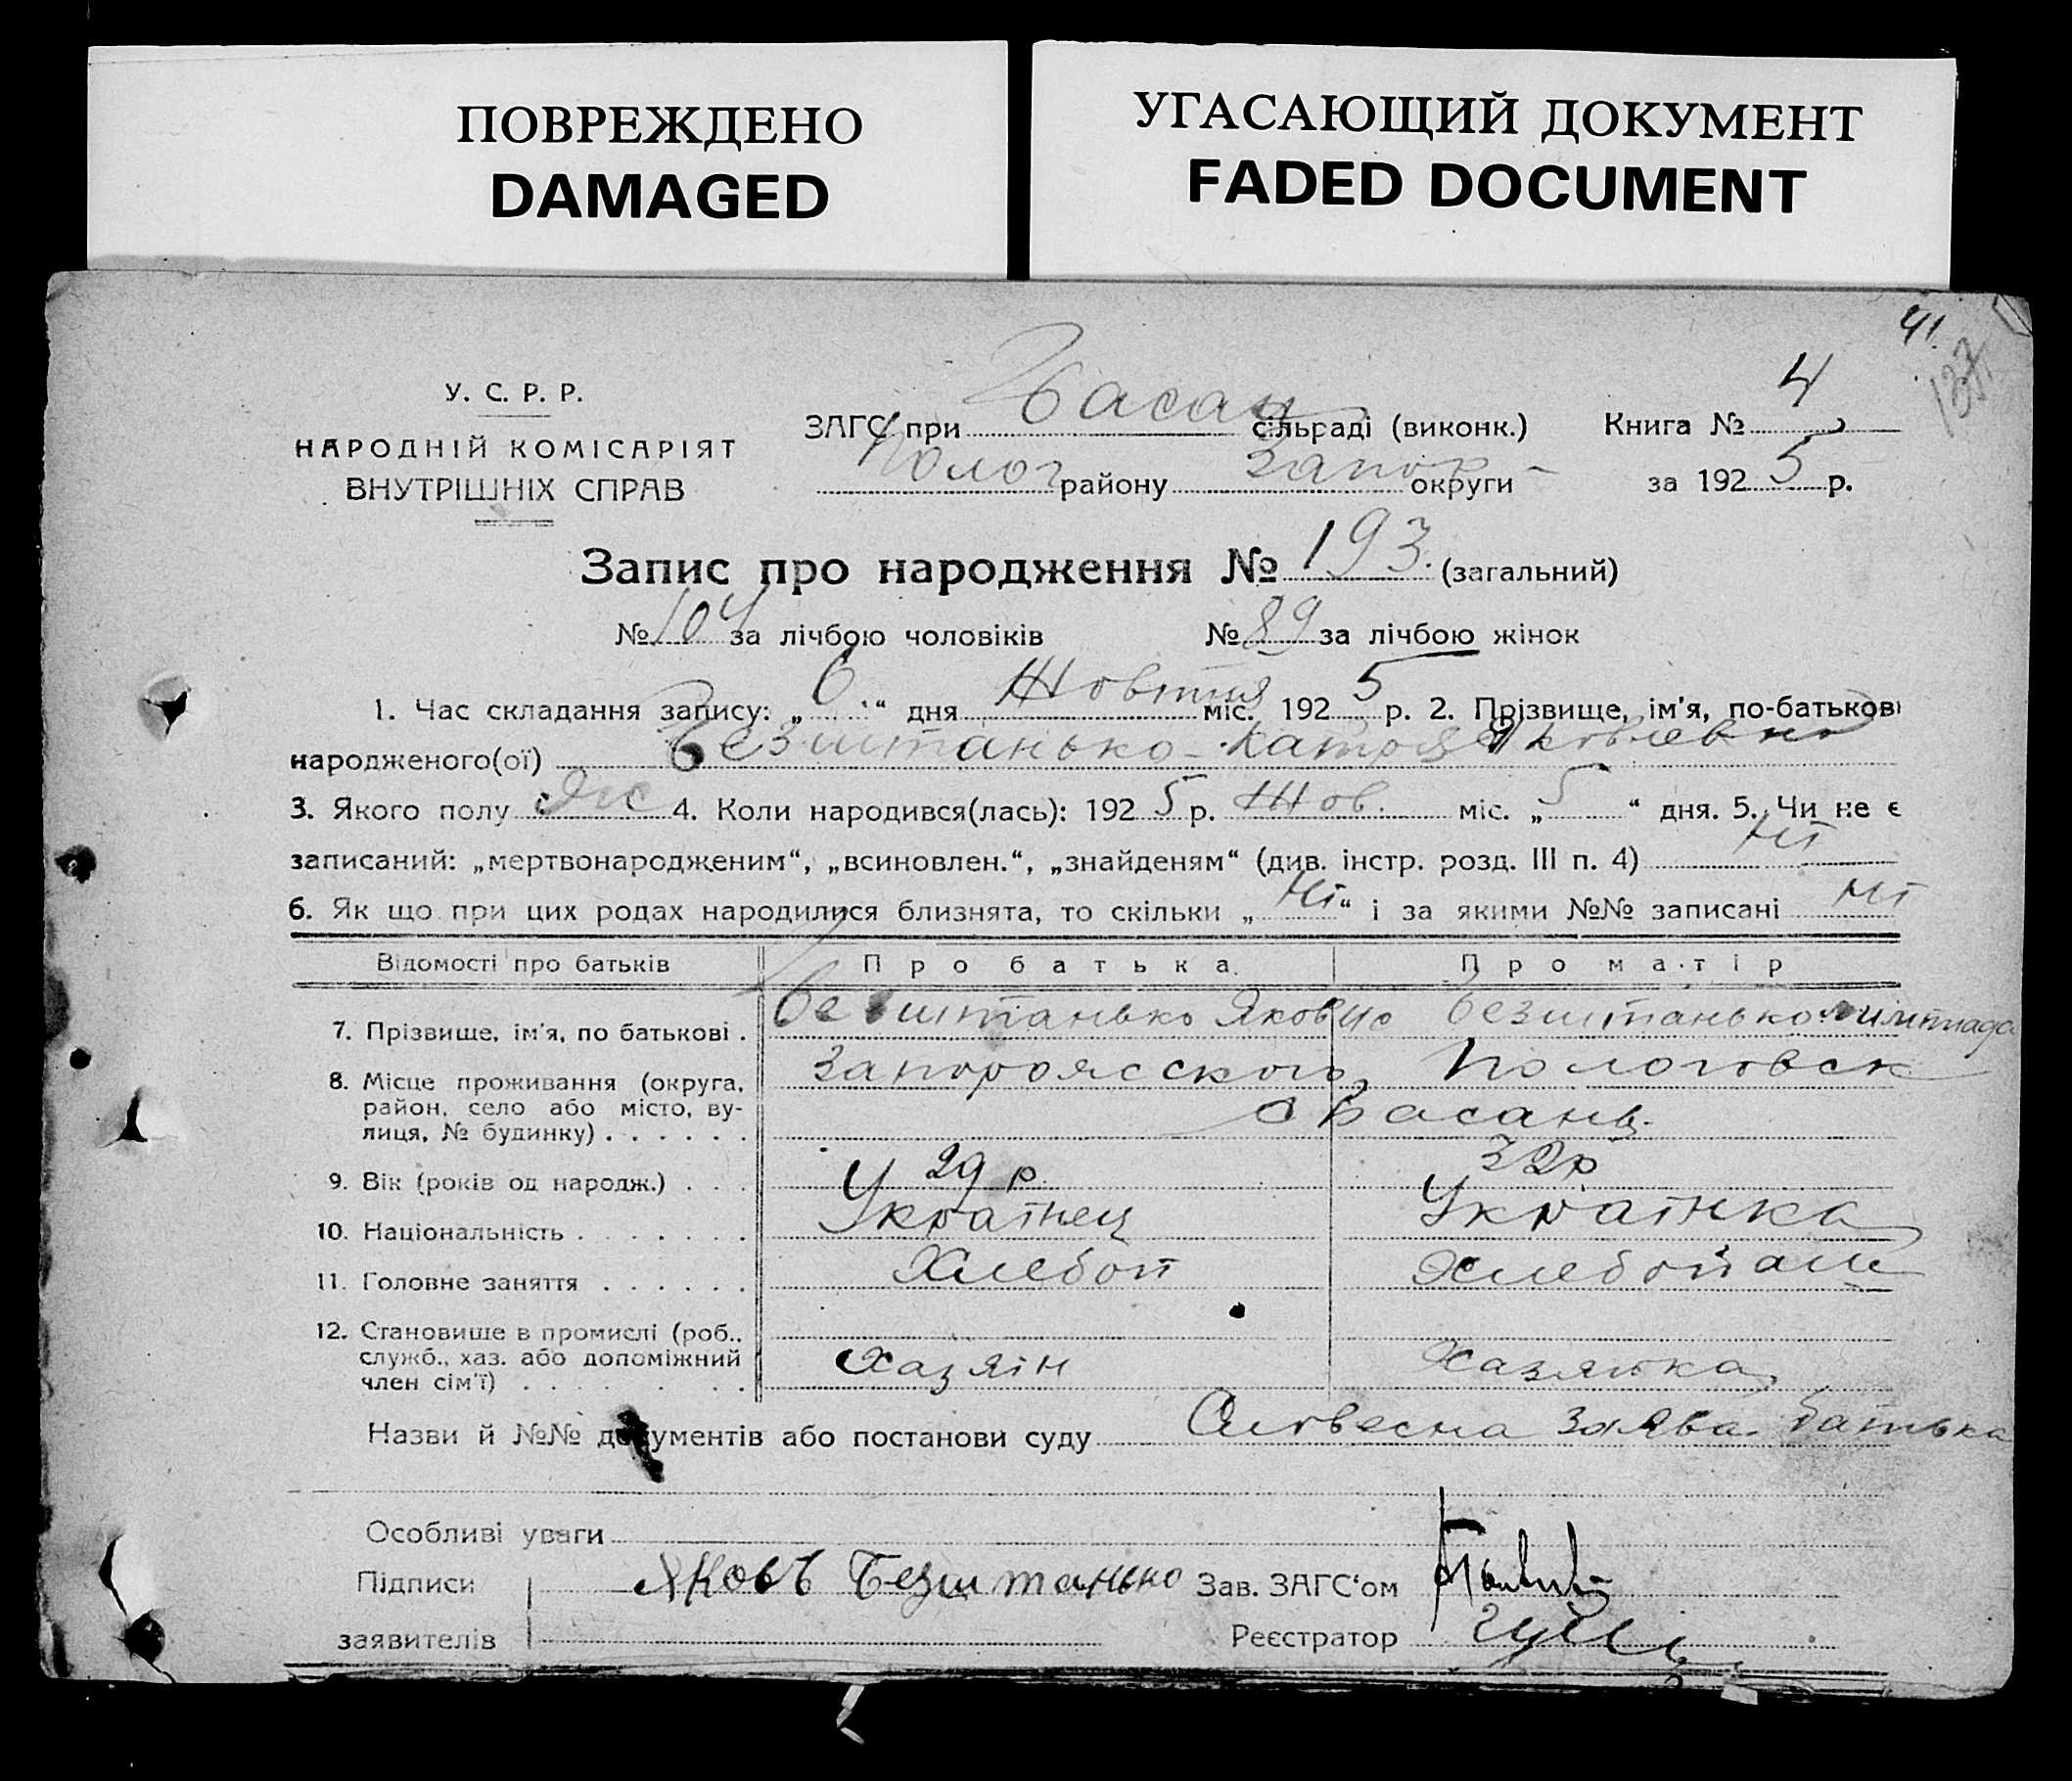 ПОВРЕЖДЕНО
DAMAGED
УГАСАЮЩИЙ ДОКУМЕНТ
FADED DOCUMENT
41.
137
У. С. Р. Р.
НАРОДНІЙ КОМІСАРІЯТ
ВНУТРІШНІХ СПРАВ
ЗАГС при Басан сільраді (виконк.) Книга № 4
Полог району Запор округи за 1925 р.
Запис про народження № 193. (загальний)
№ 104 за лічбою чоловіків № 89 за лічбою жінок
1. Час складання запису: „6“ дня Жовтня міс. 1925 р. 2. Прізвище, ім'я, по-батькові
народженого(ої) Безштанько Катря Яковлевно
3. Якого полу жс 4. Коли народився(лась): 1925 р. Жов. міс. „5“ дня. 5. Чи не є
записаний: „мертвонародженим“, „всиновлен.“, „знайденям“ (див. інстр. розд. III п. 4) Ні
6. Як що при цих родах народилися близнята, то скільки „Ні“ і за якими №№ записані Ні
Відомості про батьків Про батька Про матір
7. Прізвище, ім'я, по батькові . Безштанько Яков Безштанько
8. Місце проживання (округа, Запорожского, Пологовск
район, село або місто, ву-
лиця, № будинку) . . . . . . с Басань.
9. Вік (років од народж.) . . . 29 р 32 р
10. Національність . . . . . . . Українец Українка
11. Головне заняття . . . . . . Хлебоп Хлебопаш
12. Становище в промислі (роб.,
служб., хаз. або допоміжний Хазяїн Хазяйка
член сім'ї) . . . . . .
Назви й №№ документів або постанови суду Словесна заява батька
Особливі уваги
Підписи Яковъ Безштанько Зав. ЗАГС'ом
заявителів Реєстратор